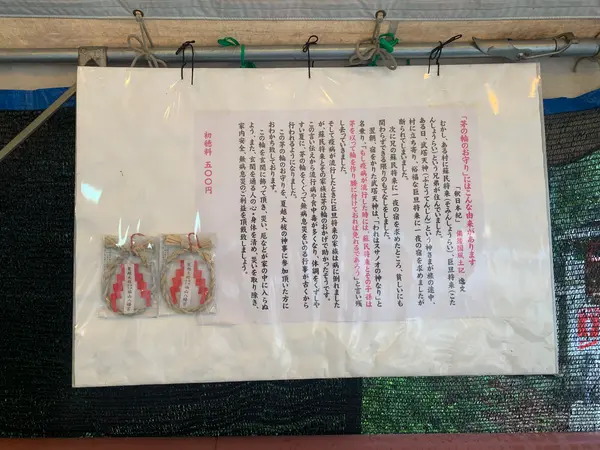 「茅の輪のお守り」にはこんな由来があります
「釈日本紀」 備後国風土記 逸文
むかし、ある村に蘇民将来(そみんしょうらい)、巨旦将来(こた
んしょうらい)という兄弟が住んでいました。
ある日、武塔天神(ぶとうてんじん)という神さまが旅の途中、
村に立ち寄り、裕福な巨旦将来に一夜の宿を求めましたが
断られてしまいました。
次に兄の蘇民将来に一夜の宿を求めたところ、貧しいにも
関わらずできる限りのもてなしをしました。
翌朝、宿をかりた武塔天神は、「われはスサノオの神なり」と
名乗り、「もし疫病が流行した時には、蘇民将来とその子孫は
茅を以って輪を作り腰に付けておれば免れるであろう」と言い残
し去っていきました。
そして疫病が流行したときに巨旦将来の家族は病に倒れました
が、蘇民将来とその家族は茅の輪のおかげで助かったそうです。
この言い伝えから流行病や食中毒が多くなり、体調をくずしや
すい夏に、茅の輪をくぐって無病息災をいのる行事が古くから
行われるようになりました。
この茅の輪のお守りを、夏越大祓の神事に参加頂いた方に
おわかち致しております。
この輪を玄関に飾って頂き、災い、厄などが家の中に入らぬ
よう、また、玄関を通る人の心・身体を清め、災いを取り除き、
家内安全、無病息災のご利益を頂戴致しましょう。
初穂料 五〇〇円